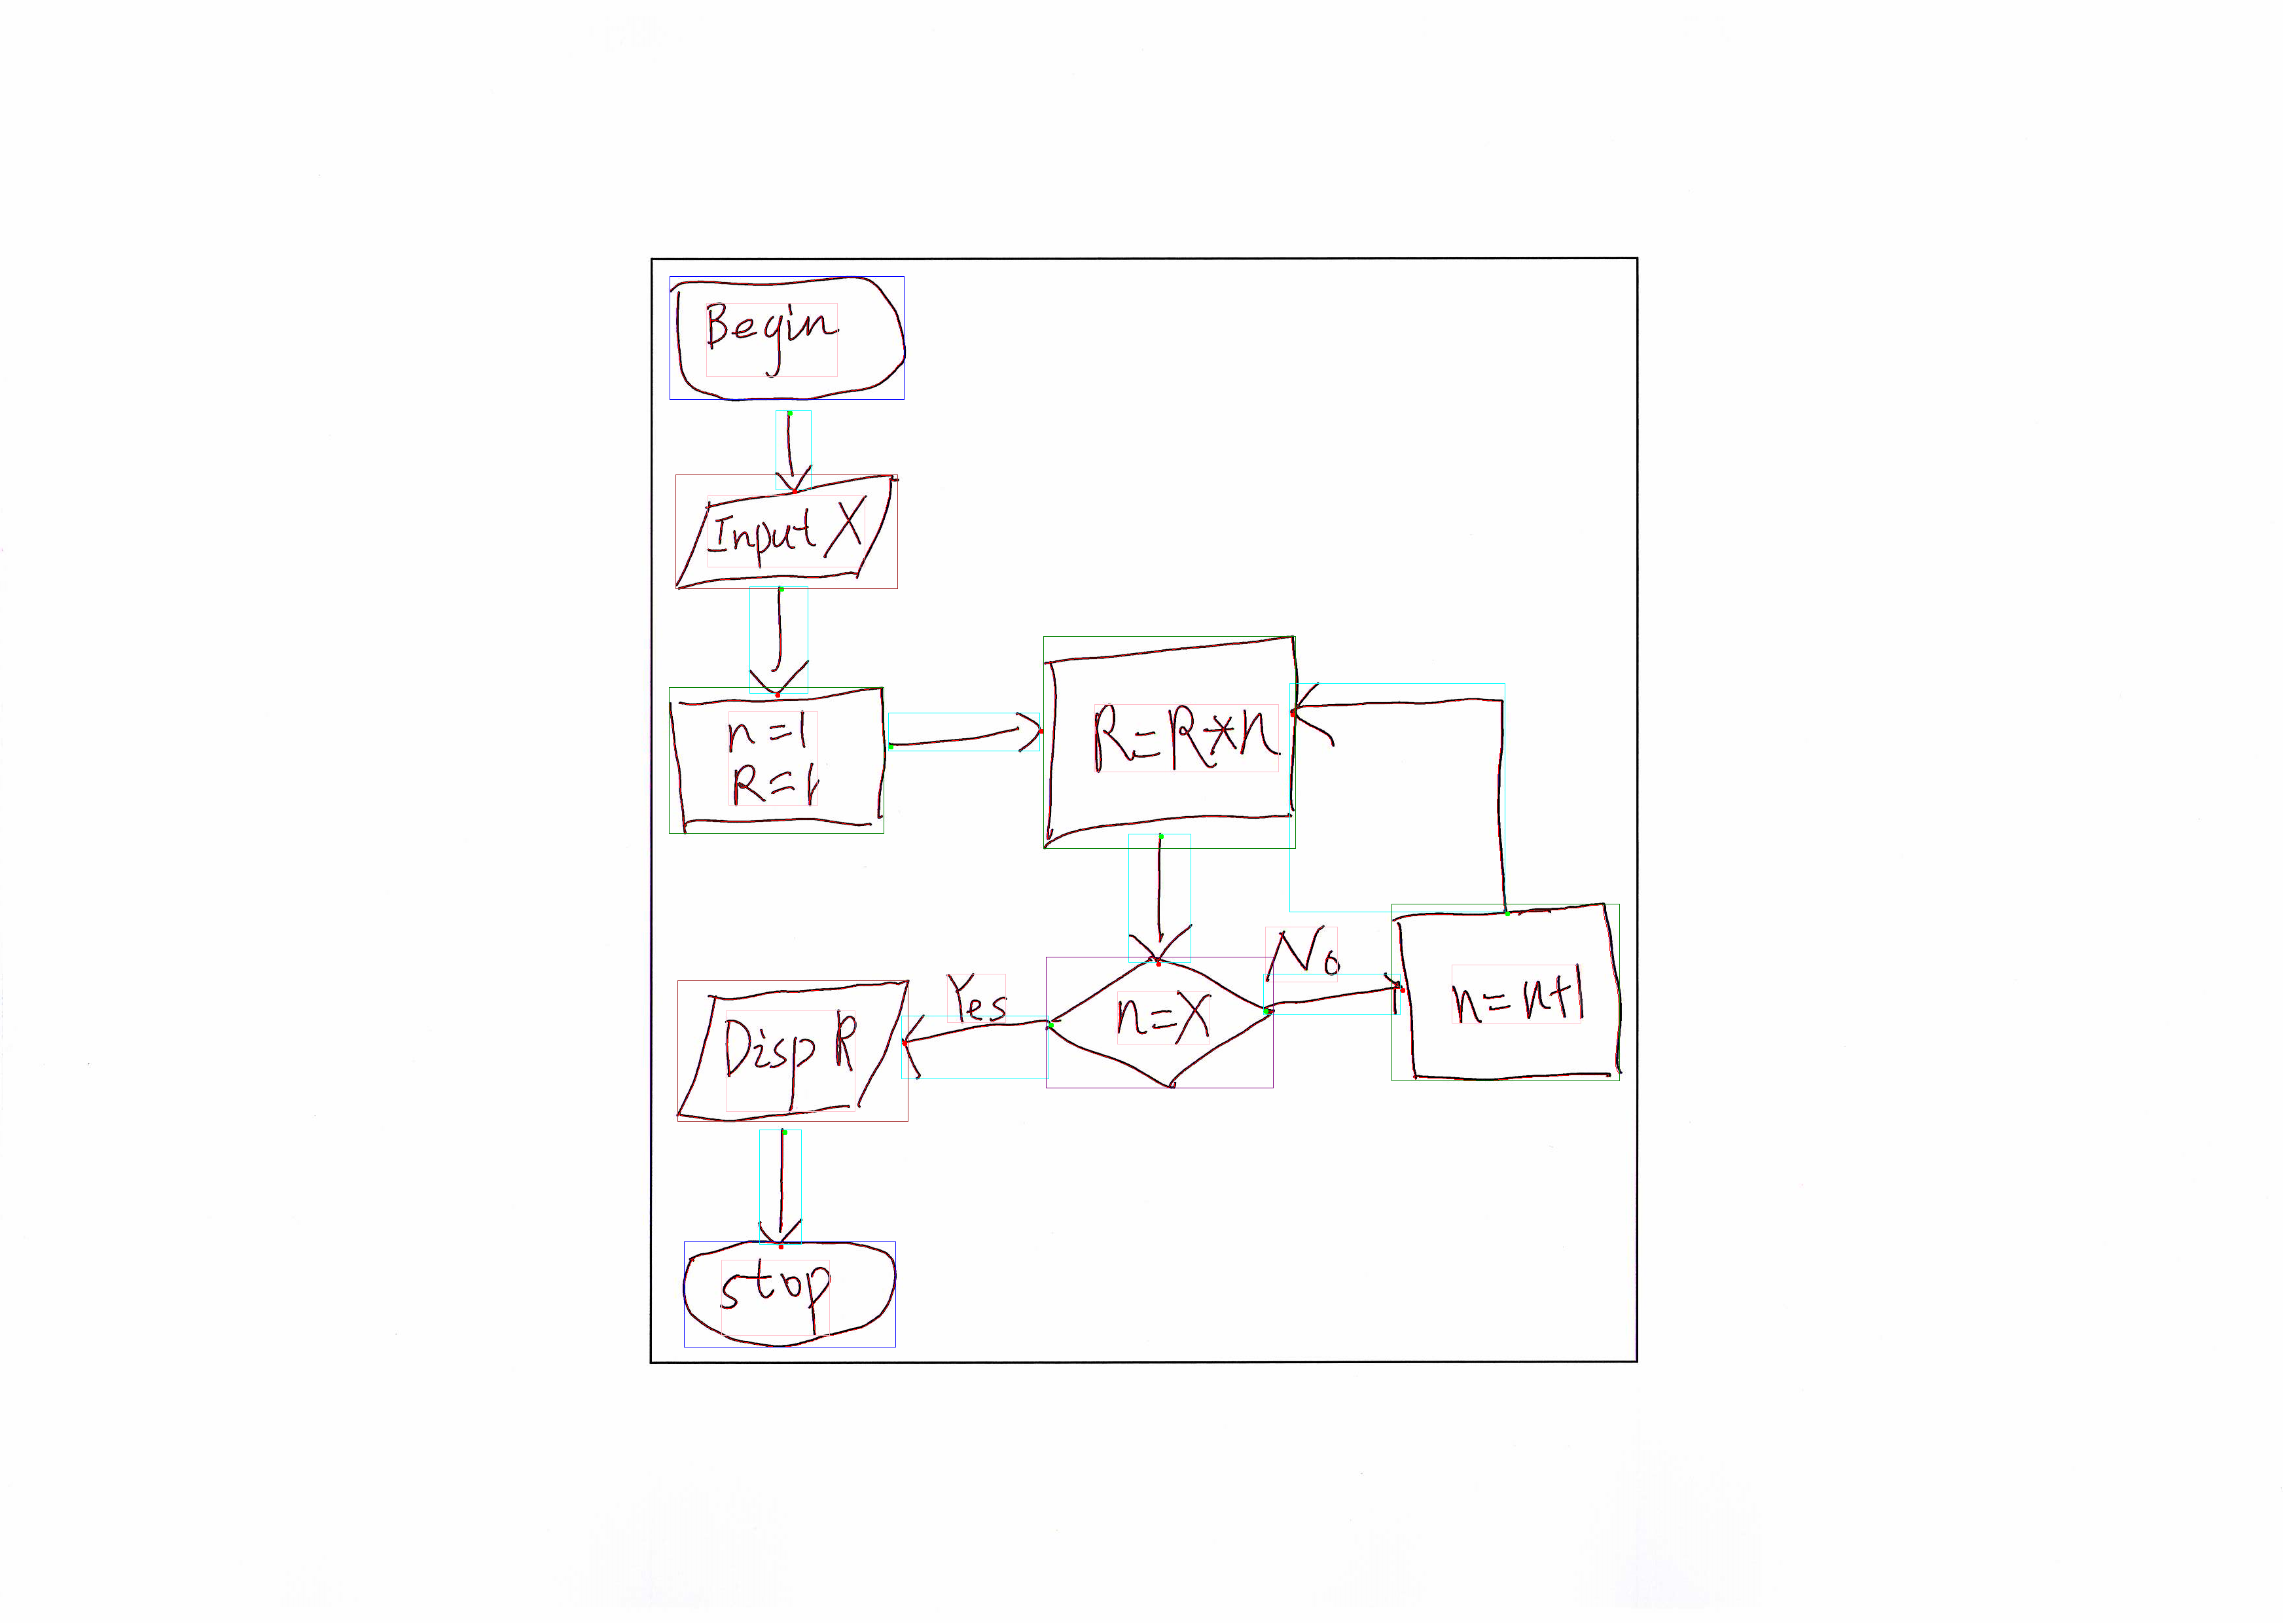 Begin
Input X
n=1
R=1
R=R*n
n=X
No
n=n+1
Yes
Disp R
stop